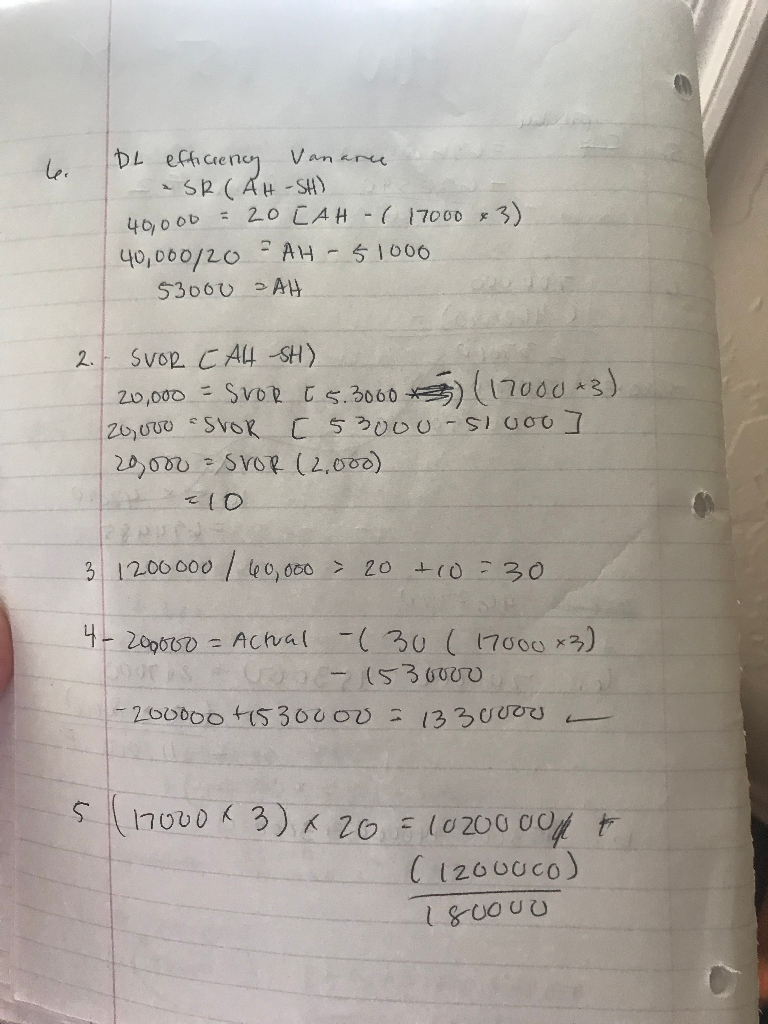 6. DL efficiency Variance
= SR (AH - SH)
40,000 = 20 [AH - ( 17000 × 3)
40,000/20 = AH - 51000
53000 = AH
2. - SVOR [AH - SH)
20,000 = SVOR [ 5.3000 ) (17000 × 3)
20,000 = SVOR [ 53000 - 51000 ]
20,000 = SVOR (2,000)
= 10
3 1200000 / 60,000 > 20 + 10 = 30
4 - 200000 = Actual - ( 30 ( 17000 × 3)
- 1530000
- 200000 + 1530000 = 1330000
5 (17000 × 3) × 20 = 1020000 +
( 1200000)
180000